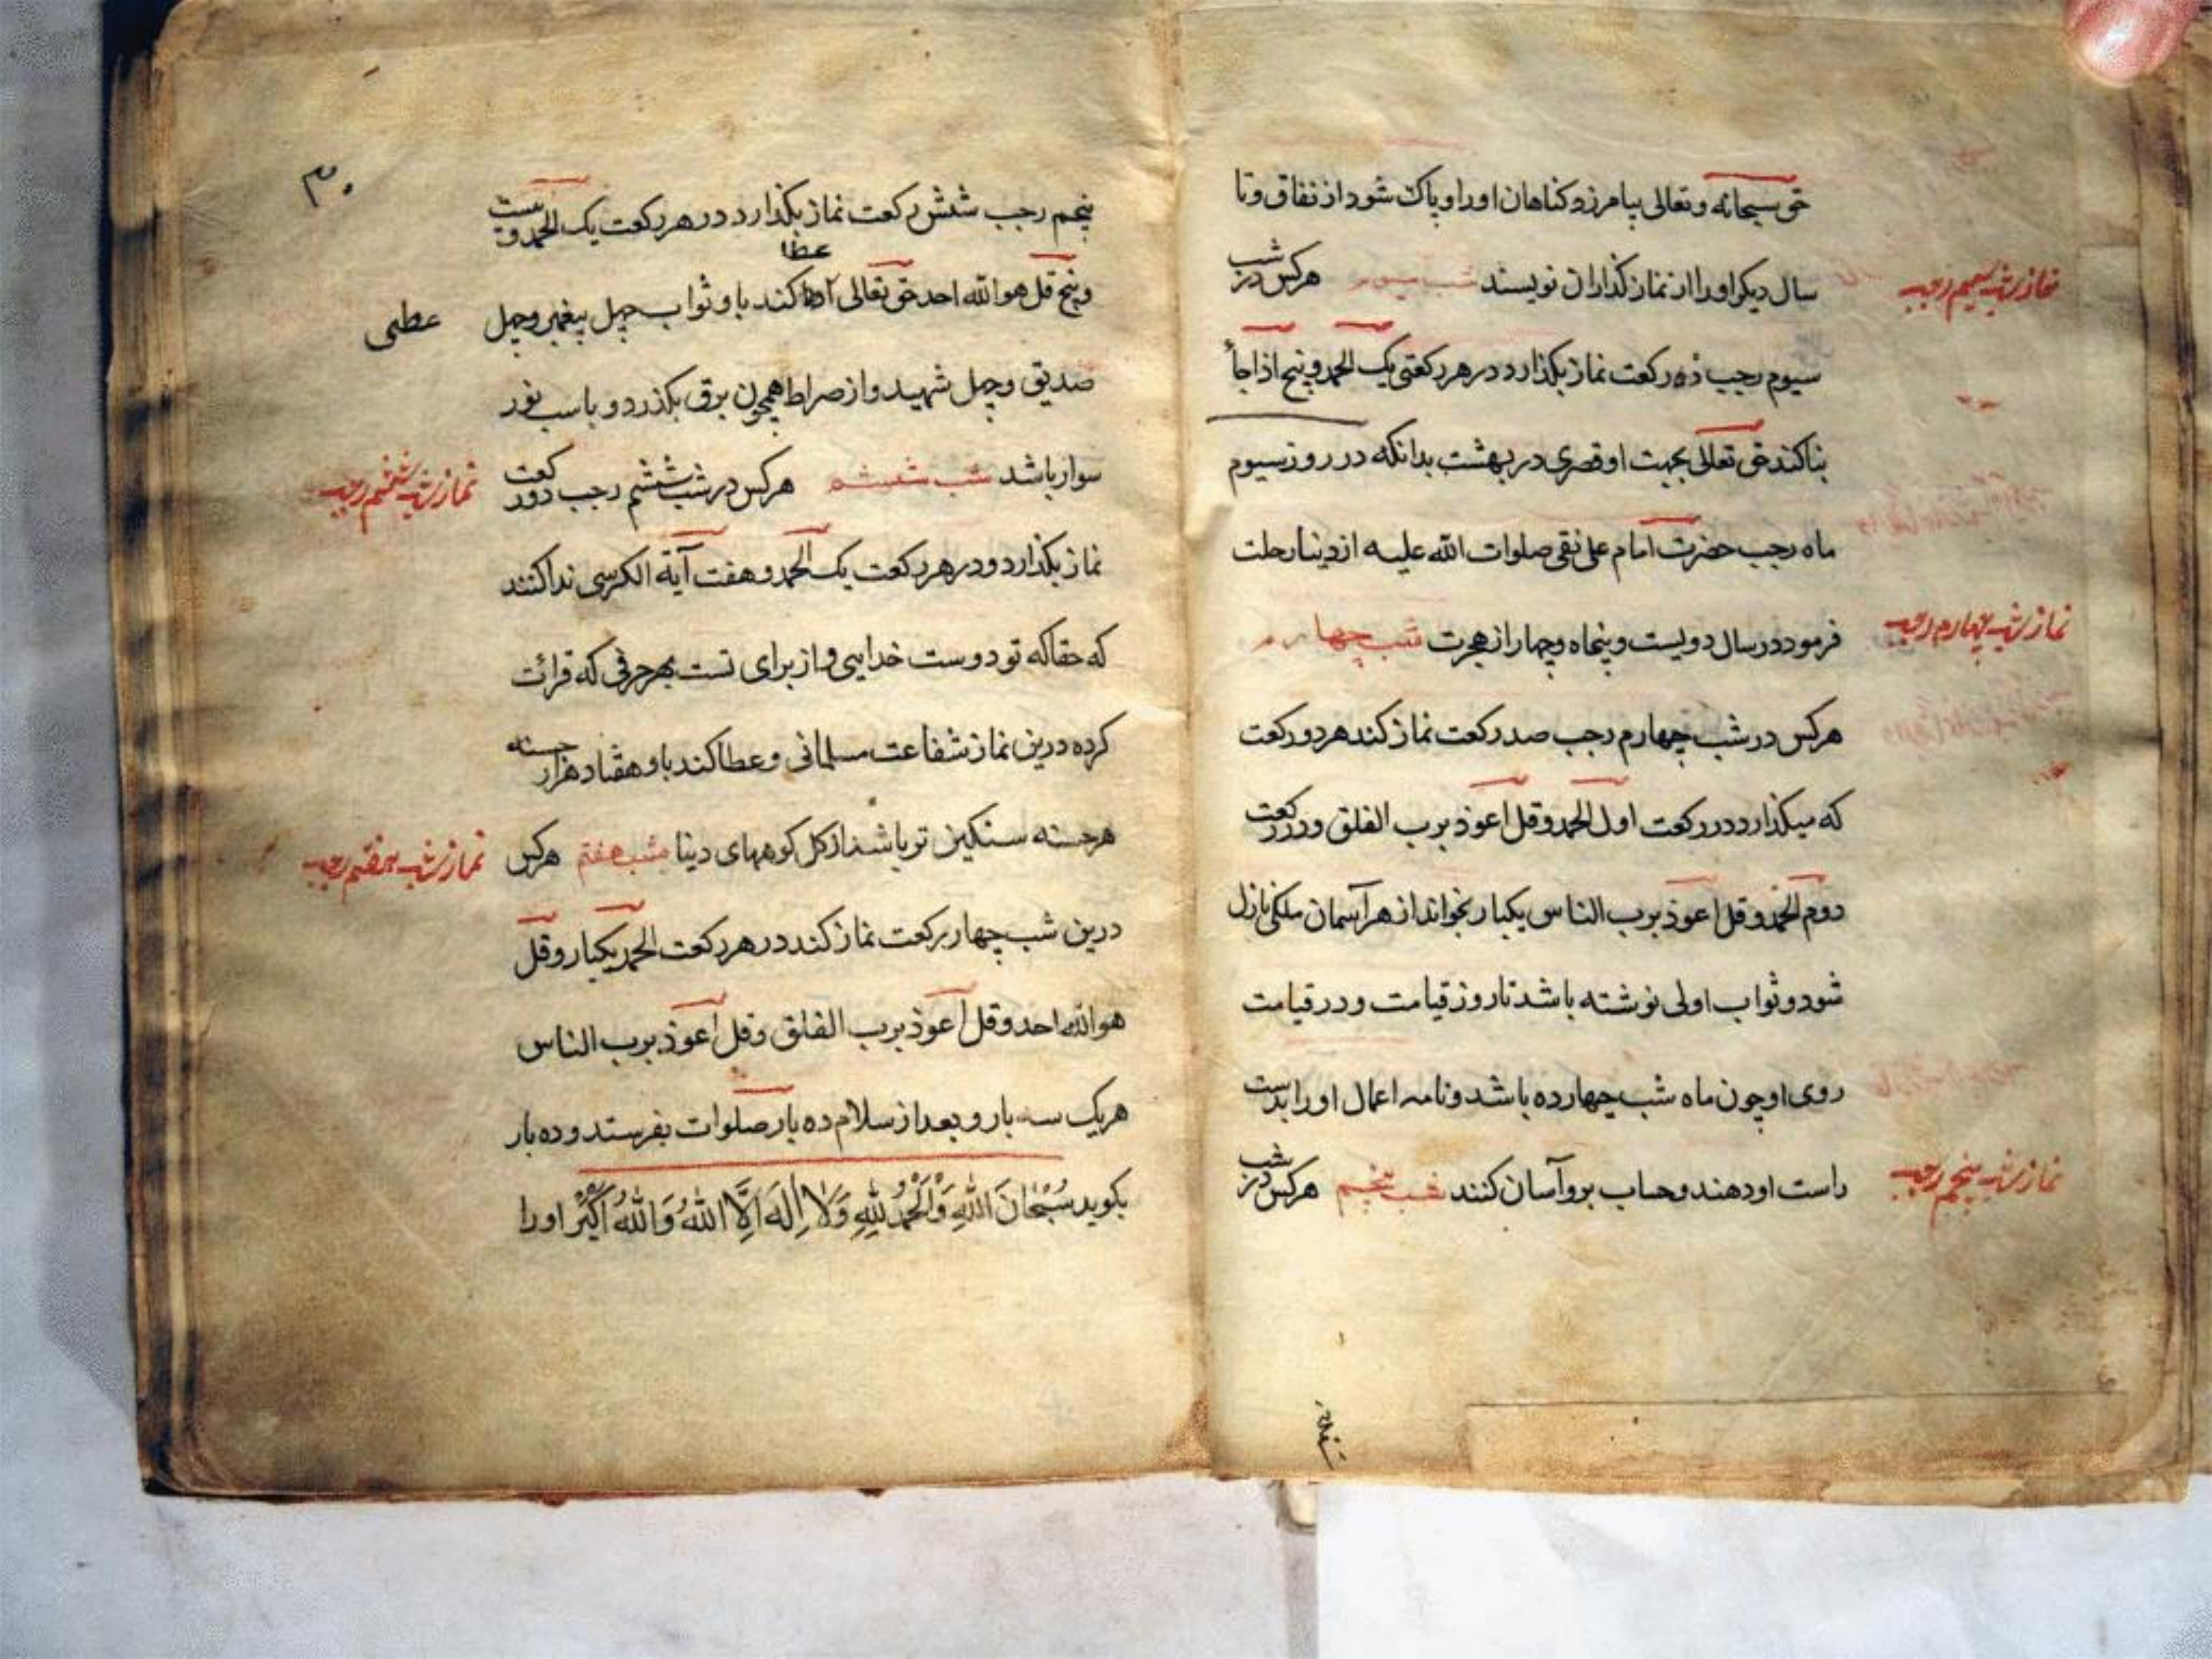 حق سبحانه و تعالی بیامرزد کناهان او را و پاک شود از نفاق و تا
نماز شب سیم رجب
سال دیکر او را از نماز کذاران نویسند شب سیوم هرکس در شب
سیوم رجب ده رکعت نماز بکذارد در هر رکعتی یک الحمد و پنج اذا جاء
بنا کند حق تعالی بجهت او قصری در بهشت بدانکه در روز سیوم
ماه رجب حضرت امام علی نقی صلوات الله علیه از دنیا رحلت
نماز شب چهارم رجب
فرمود در سال دویست و پنجاه و چهار از هجرت شب چهارم
هرکس در شب چهارم رجب صد رکعت نماز کند هر دو رکعت
که میکذارد در رکعت اول الحمد و قل اعوذ برب الفلق و در رکعت
دوم الحمد و قل اعوذ برب الناس یکبار بخواند از هر آسمان ملکی نازل
شود و ثواب اولی نوشته باشد تا روز قیامت و در قیامت
روی او چون ماه شب چهارده باشد و نامه اعمال او را بدست
نماز شب پنجم رجب
راست او دهند و حساب برو آسان کنند شب پنجم هرکس در شب
۳۰
پنجم رجب شش رکعت نماز بکذارد در هر رکعت یک الحمد و بیست
عطا
و پنج قل هو الله احد حق تعالی کند باو ثواب چهل پیغمبر و چهل
عطی
صدیق و چهل شهید و از صراط همچون برق بکذرد و با اسب نور
سوار باشد شب ششم هرکس در شب ششم رجب دو رکعت
نماز شب ششم رجب
نماز بکذارد و در هر رکعت یک الحمد و هفت آیة الکرسی ندا کنند
که حقا که تو دوست خدایی و از برای تست بهر حرفی که قرائت
کرده درین نماز شفاعت مسلمانی و عطا کند باو هفتاد هزار حسنه
هر حسنه سنکین تر باشد از کل کوههای دنیا شب هفتم هرکس
نماز شب هفتم رجب
درین شب چهار رکعت نماز کند در هر رکعت الحمد یکبار و قل
هو الله احد و قل اعوذ برب الفلق و قل اعوذ برب الناس
هر یک سه بار و بعد از سلام ده بار صلوات بفرستد و ده بار
بکوید سُبْحَانَ اللَّهِ وَالْحَمْدُ لِلَّهِ وَلَا إِلَهَ إِلَّا اللَّهُ وَاللَّهُ أَكْبَرُ او را